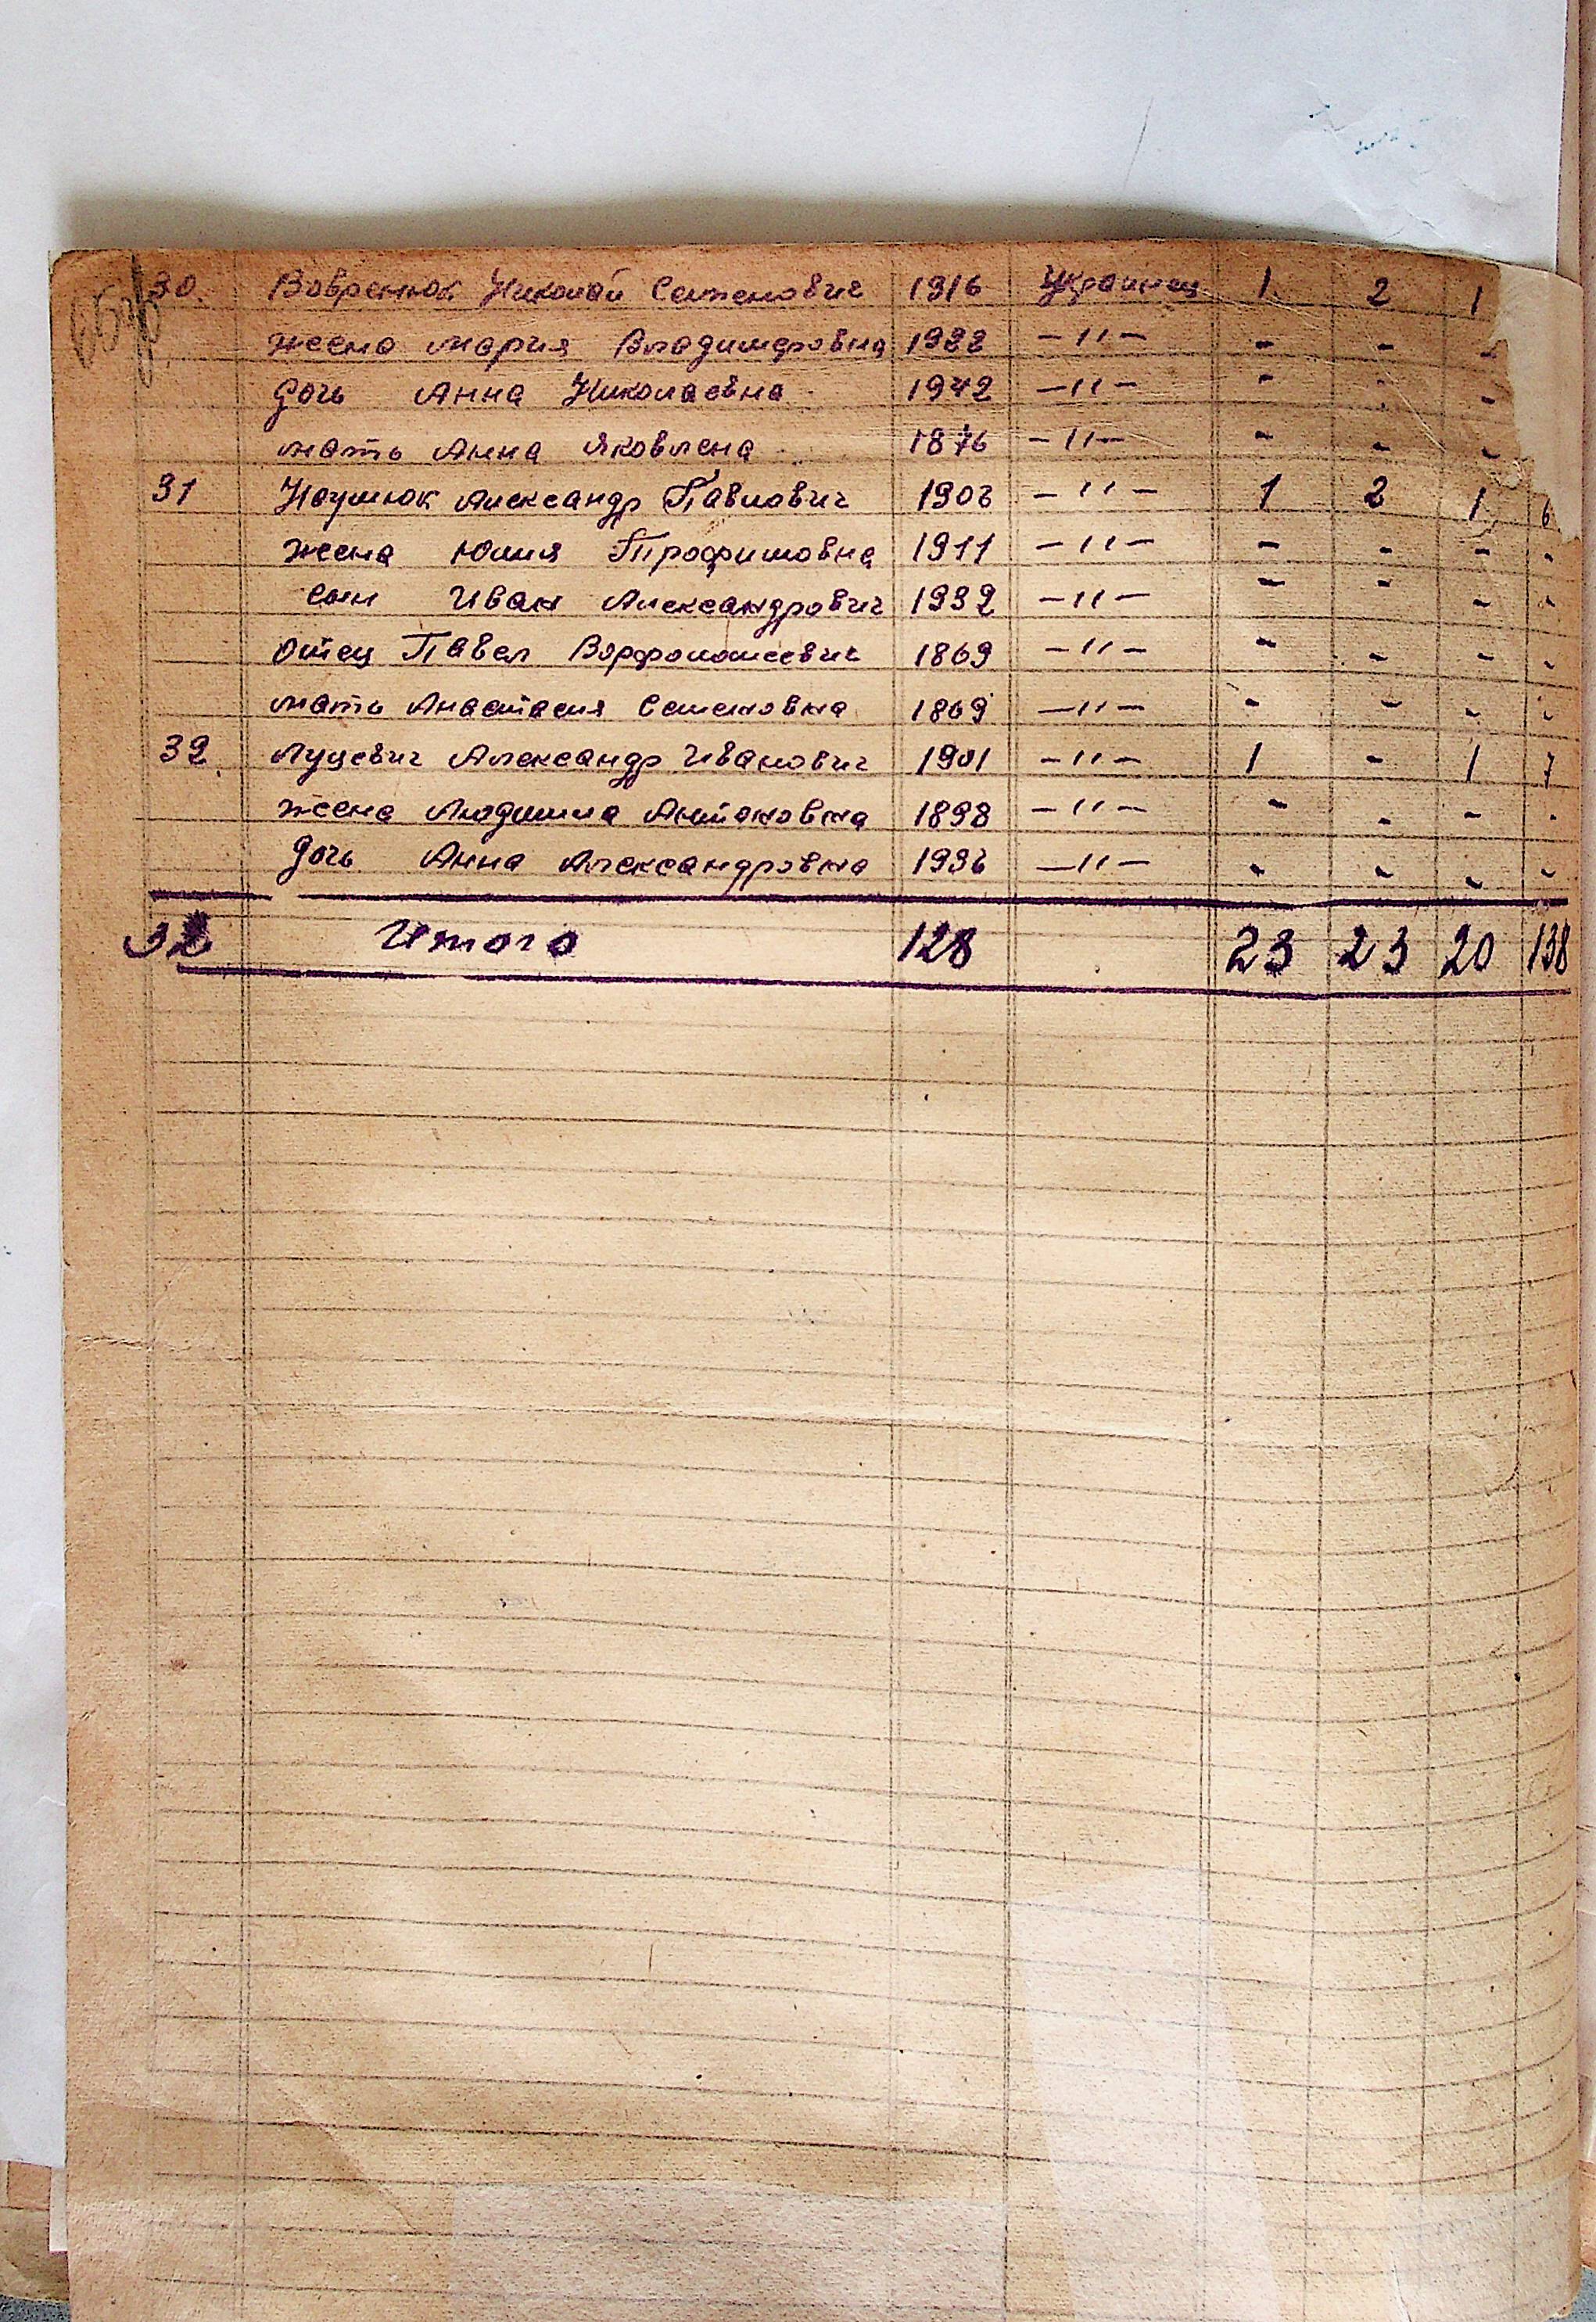 30. Вавренюк Николай Семенович 1916 Украинец 1 2 1
жена Мария Владимировна 1922 -"- - - -
дочь Анна Николаевна 1942 -"- - - -
мать Анна Яковлена 1876 -"- - - -
31 Наумюк Александр Павлович 1908 -"- 1 2 1 6
жена Юлия Трофимовна 1911 -"- - - - -
сын Иван Александрович 1932 -"- - - - -
отец Павел Ворфоломеевич 1869 -"- - - - -
мать Анастасия Семеновна 1869 -"- - - - -
32. Луцевич Александр Иванович 1901 -"- 1 - 1 7
жена Людмила Антоновна 1898 -"- - - - -
дочь Анна Александровна 1936 -"- - - - -
32 Итого 128 23 23 20 138